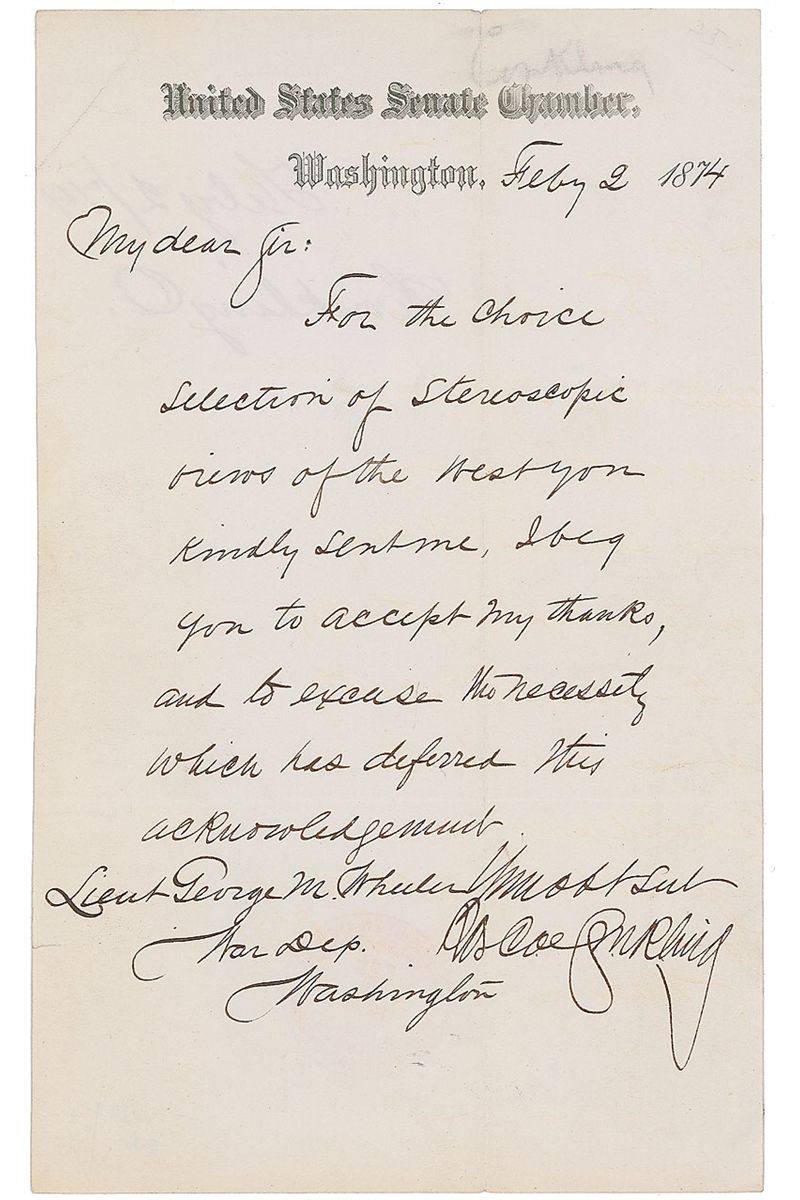 Conkling
United States Senate Chamber,
Washington, Feby 2 1874
My dear Sir:
For the choice
selection of stereoscopic
views of the West you
kindly sent me, I beg
you to accept my thanks,
and to excuse the necessity
which has deferred this
acknowledgement
Lieut George M. Wheeler Yr most obt Sert
War Dep. Roscoe Conkling
Washington